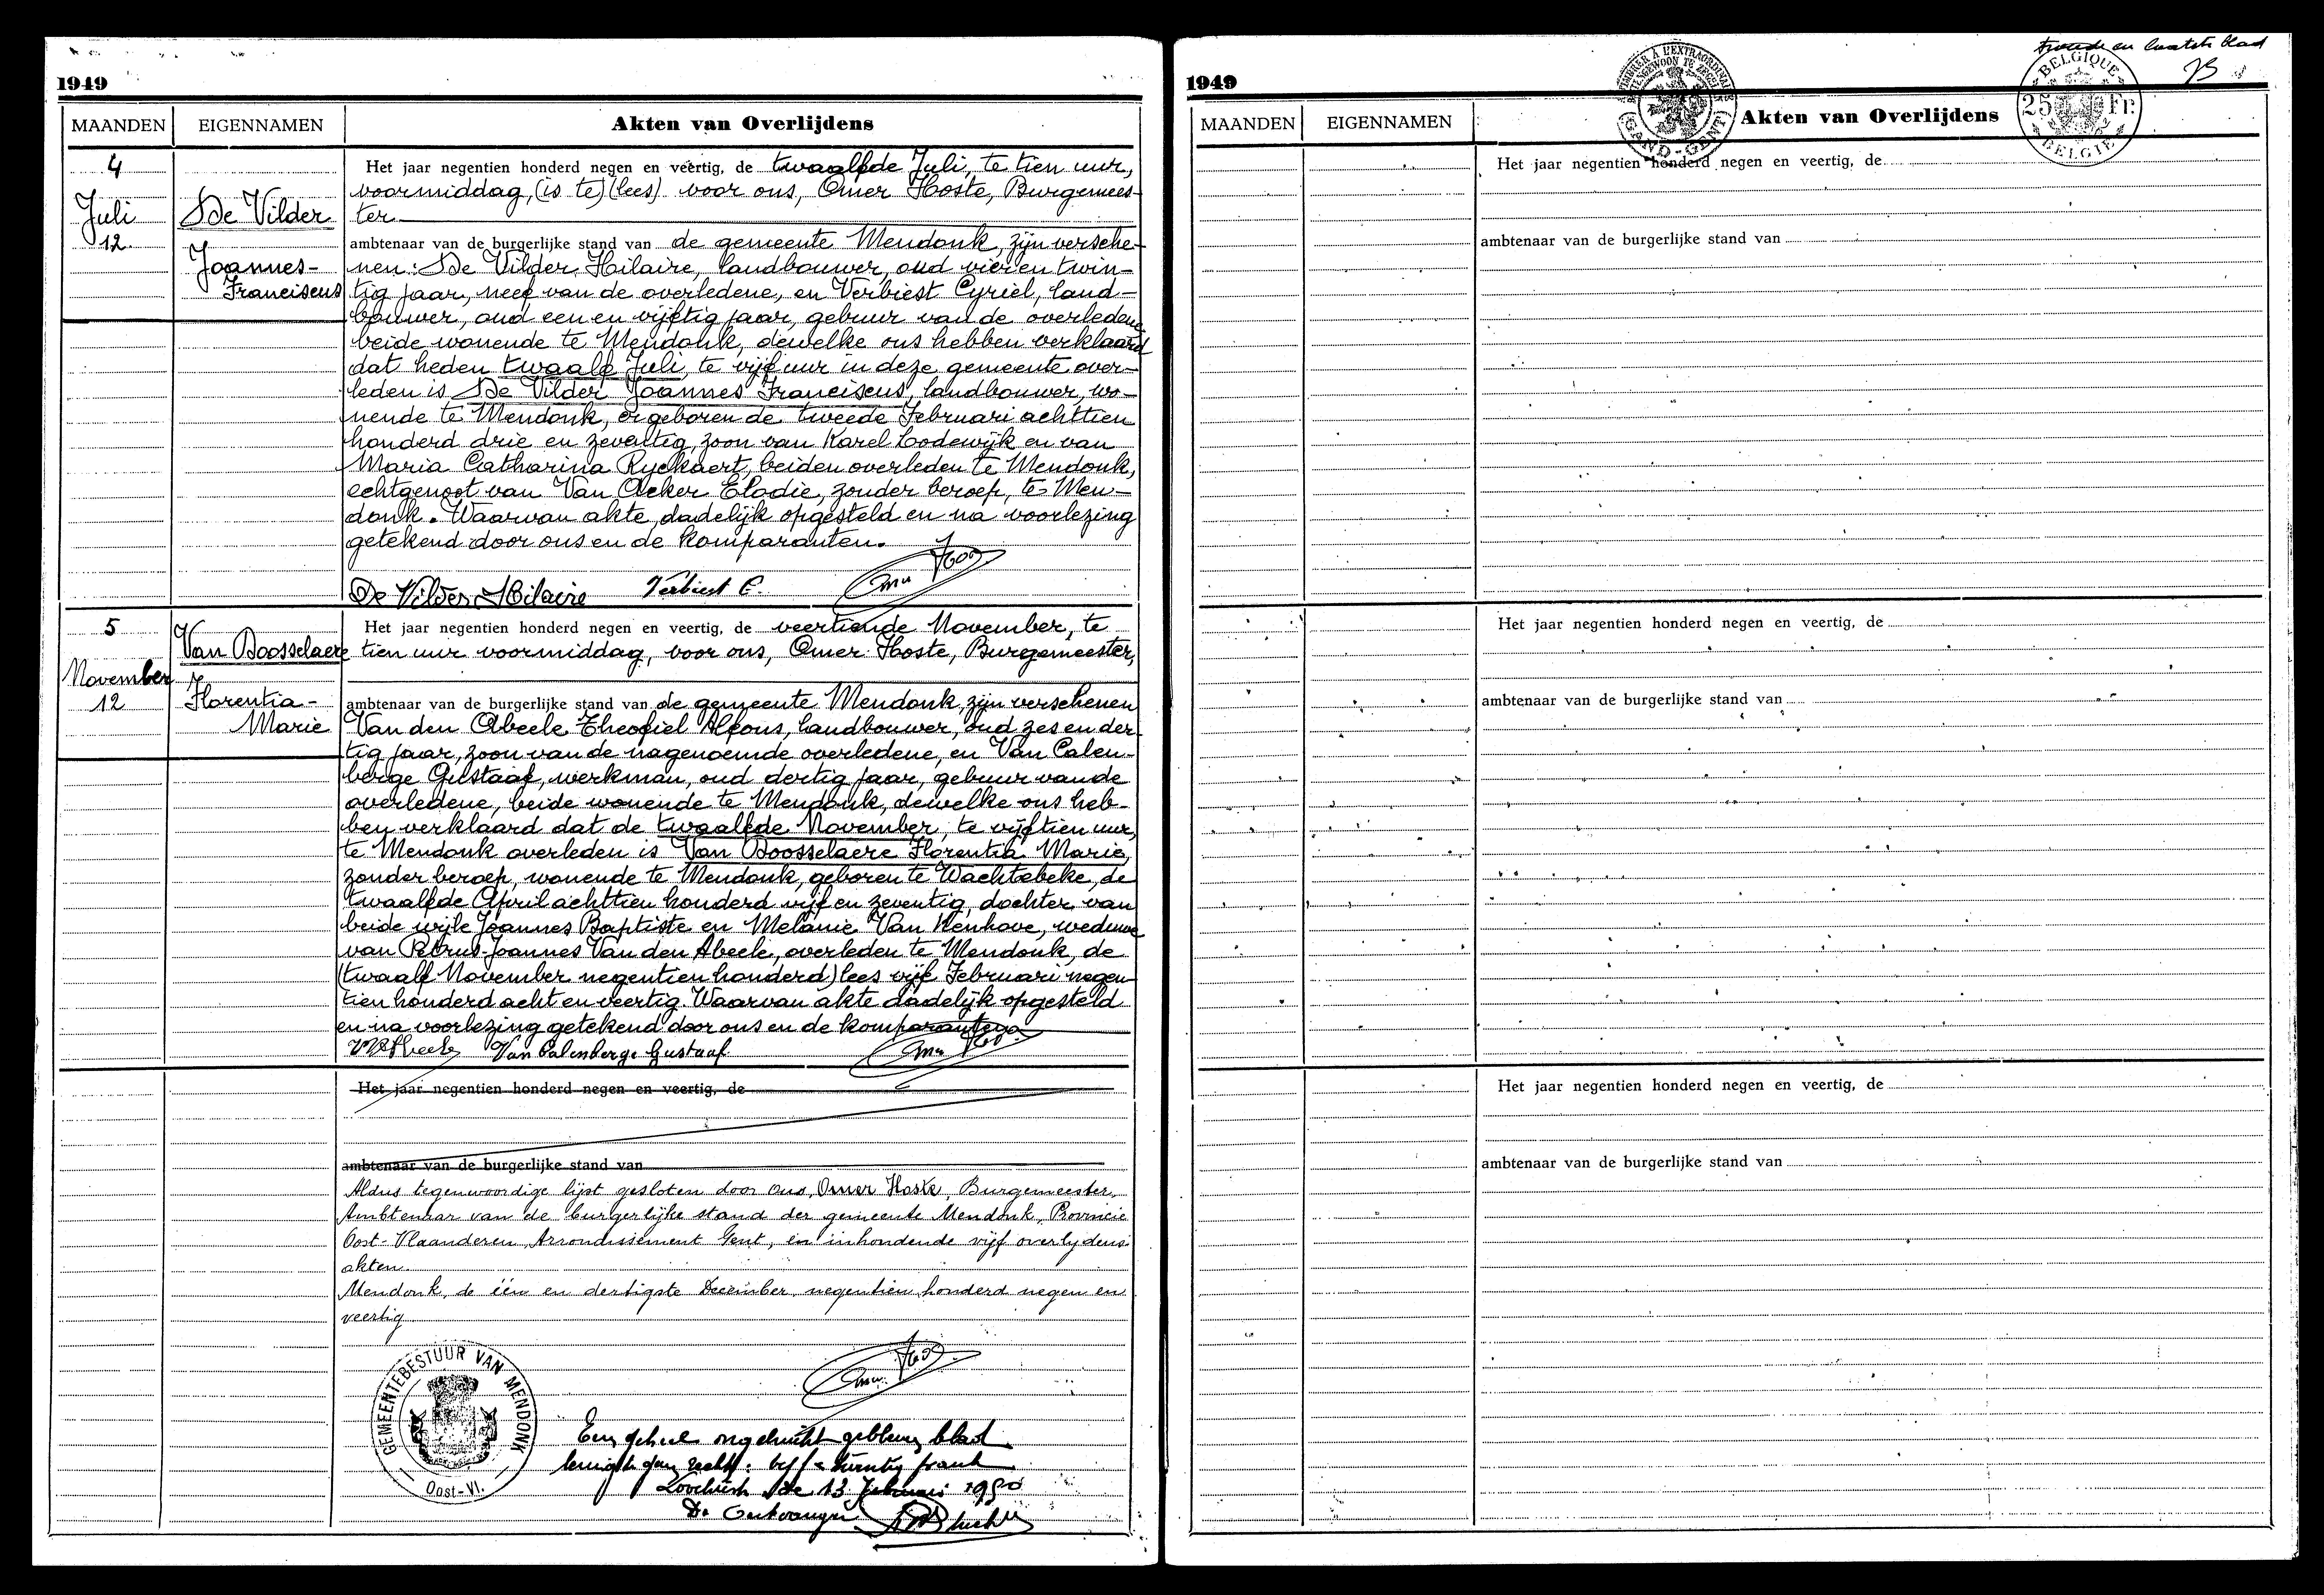 1949
MAANDEN EIGENNAMEN Akten van Overlijdens
4
Juli
12
De Vilder
Joannes-
Franciscus
Het jaar negentien honderd negen en veertig, de twaalfde Juli, te tien uur,
voormiddag, (is te) (lees) voor ons, Omer Hoste, Burgemees-
ter
ambtenaar van de burgerlijke stand van de gemeente Mendonk, zijn versche-
nen: De Vilder Hilaire, landbouwer, oud vier en twin-
tig jaar, neef van de overledene, en Verbiest Cyriel, land-
bouwer, oud een en vijftig jaar, gebuur van de overledene
beide wonende te Mendonk, dewelke ons hebben verklaard
dat heden twaalf Juli, te vijf uur in deze gemeente over-
leden is De Vilder Joannes Franciscus, landbouwer, wo-
nende te Mendonk, er geboren de tweede Februari achttien
honderd drie en zeventig, zoon van Karel Lodewijk en van
Maria Catharina Ryckaert, beiden overleden te Mendonk,
echtgenoot van Van Acker Elodie, zonder beroep, te Men-
donk. Waarvan akte, dadelijk opgesteld en na voorlezing
getekend door ons en de komparanten.
De Vilder Hilaire Verbiest C.
5
November
12
Van Boosselaere
Florentia-
Marie
Het jaar negentien honderd negen en veertig, de veertiende November, te
tien uur voormiddag, voor ons, Omer Hoste, Burgemeester,
ambtenaar van de burgerlijke stand van de gemeente Mendonk, zijn verschenen
Van den Abeele Theofiel Alfons, landbouwer, oud zes en der-
tig jaar, zoon van de nagenoemde overledene, en Van Calen-
berge Gustaaf, werkman, oud dertig jaar, gebuur van de
overledene, beide wonende te Mendonk, dewelke ons heb-
ben verklaard dat de twaalfde November, te vijftien uur,
te Mendonk overleden is Van Boosselaere Florentia Marie,
zonder beroep, wonende te Mendonk, geboren te Wachtebeke, de
twaalfde April achttien honderd vijf en zeventig, dochter van
beide wijle Joannes Baptiste en Melanie Van Kenhove, weduwe
van Petrus-Joannes Van den Abeele, overleden te Mendonk, de
(twaalf November negentien honderd) lees vijf Februari negen
tien honderd acht en veertig. Waarvan akte dadelijk opgesteld
en na voorlezing getekend door ons en de komparanten
Van Calenberge Gustaaf
Het jaar negentien honderd negen en veertig, de
ambtenaar van de burgerlijke stand van
Aldus tegenwoordige lijst gesloten door ons, Omer Hoste, Burgemeester,
Ambtenaar van de burgerlijke stand der gemeente Mendonk, Provincie
Oost-Vlaanderen Arrondissement Gent, en inhoudende vijf overlydens-
akten.
Mendonk, de één en dertigste December negentien honderd negen en
veertig
GEMEENTEBESTUUR VAN MENDONK
Oost-Vl.
blad
frank
de 13 Februari 1950
De Ontvanger
tweede en laatste blad
1949
TIMBRE A L'EXTRAORDINAIRE
GAND-GENT
BELGIQUE
25 Fr.
BELGIE
MAANDEN EIGENNAMEN Akten van Overlijdens
Het jaar negentien honderd negen en veertig, de
ambtenaar van de burgerlijke stand van
Het jaar negentien honderd negen en veertig, de
ambtenaar van de burgerlijke stand van
Het jaar negentien honderd negen en veertig, de
ambtenaar van de burgerlijke stand van